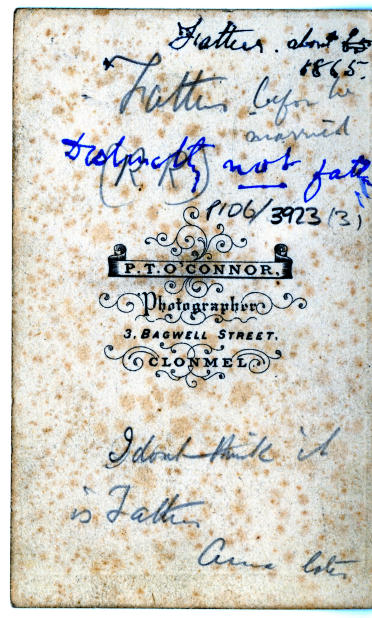 Father. about 65
1865.
* Father before he
married
Distinctly not father
(R R)
P106/3923 (3)
P. T. O'CONNOR.
Photographer
3, BAGWELL STREET.
CLONMEL
I dont think it
is Father
Anna